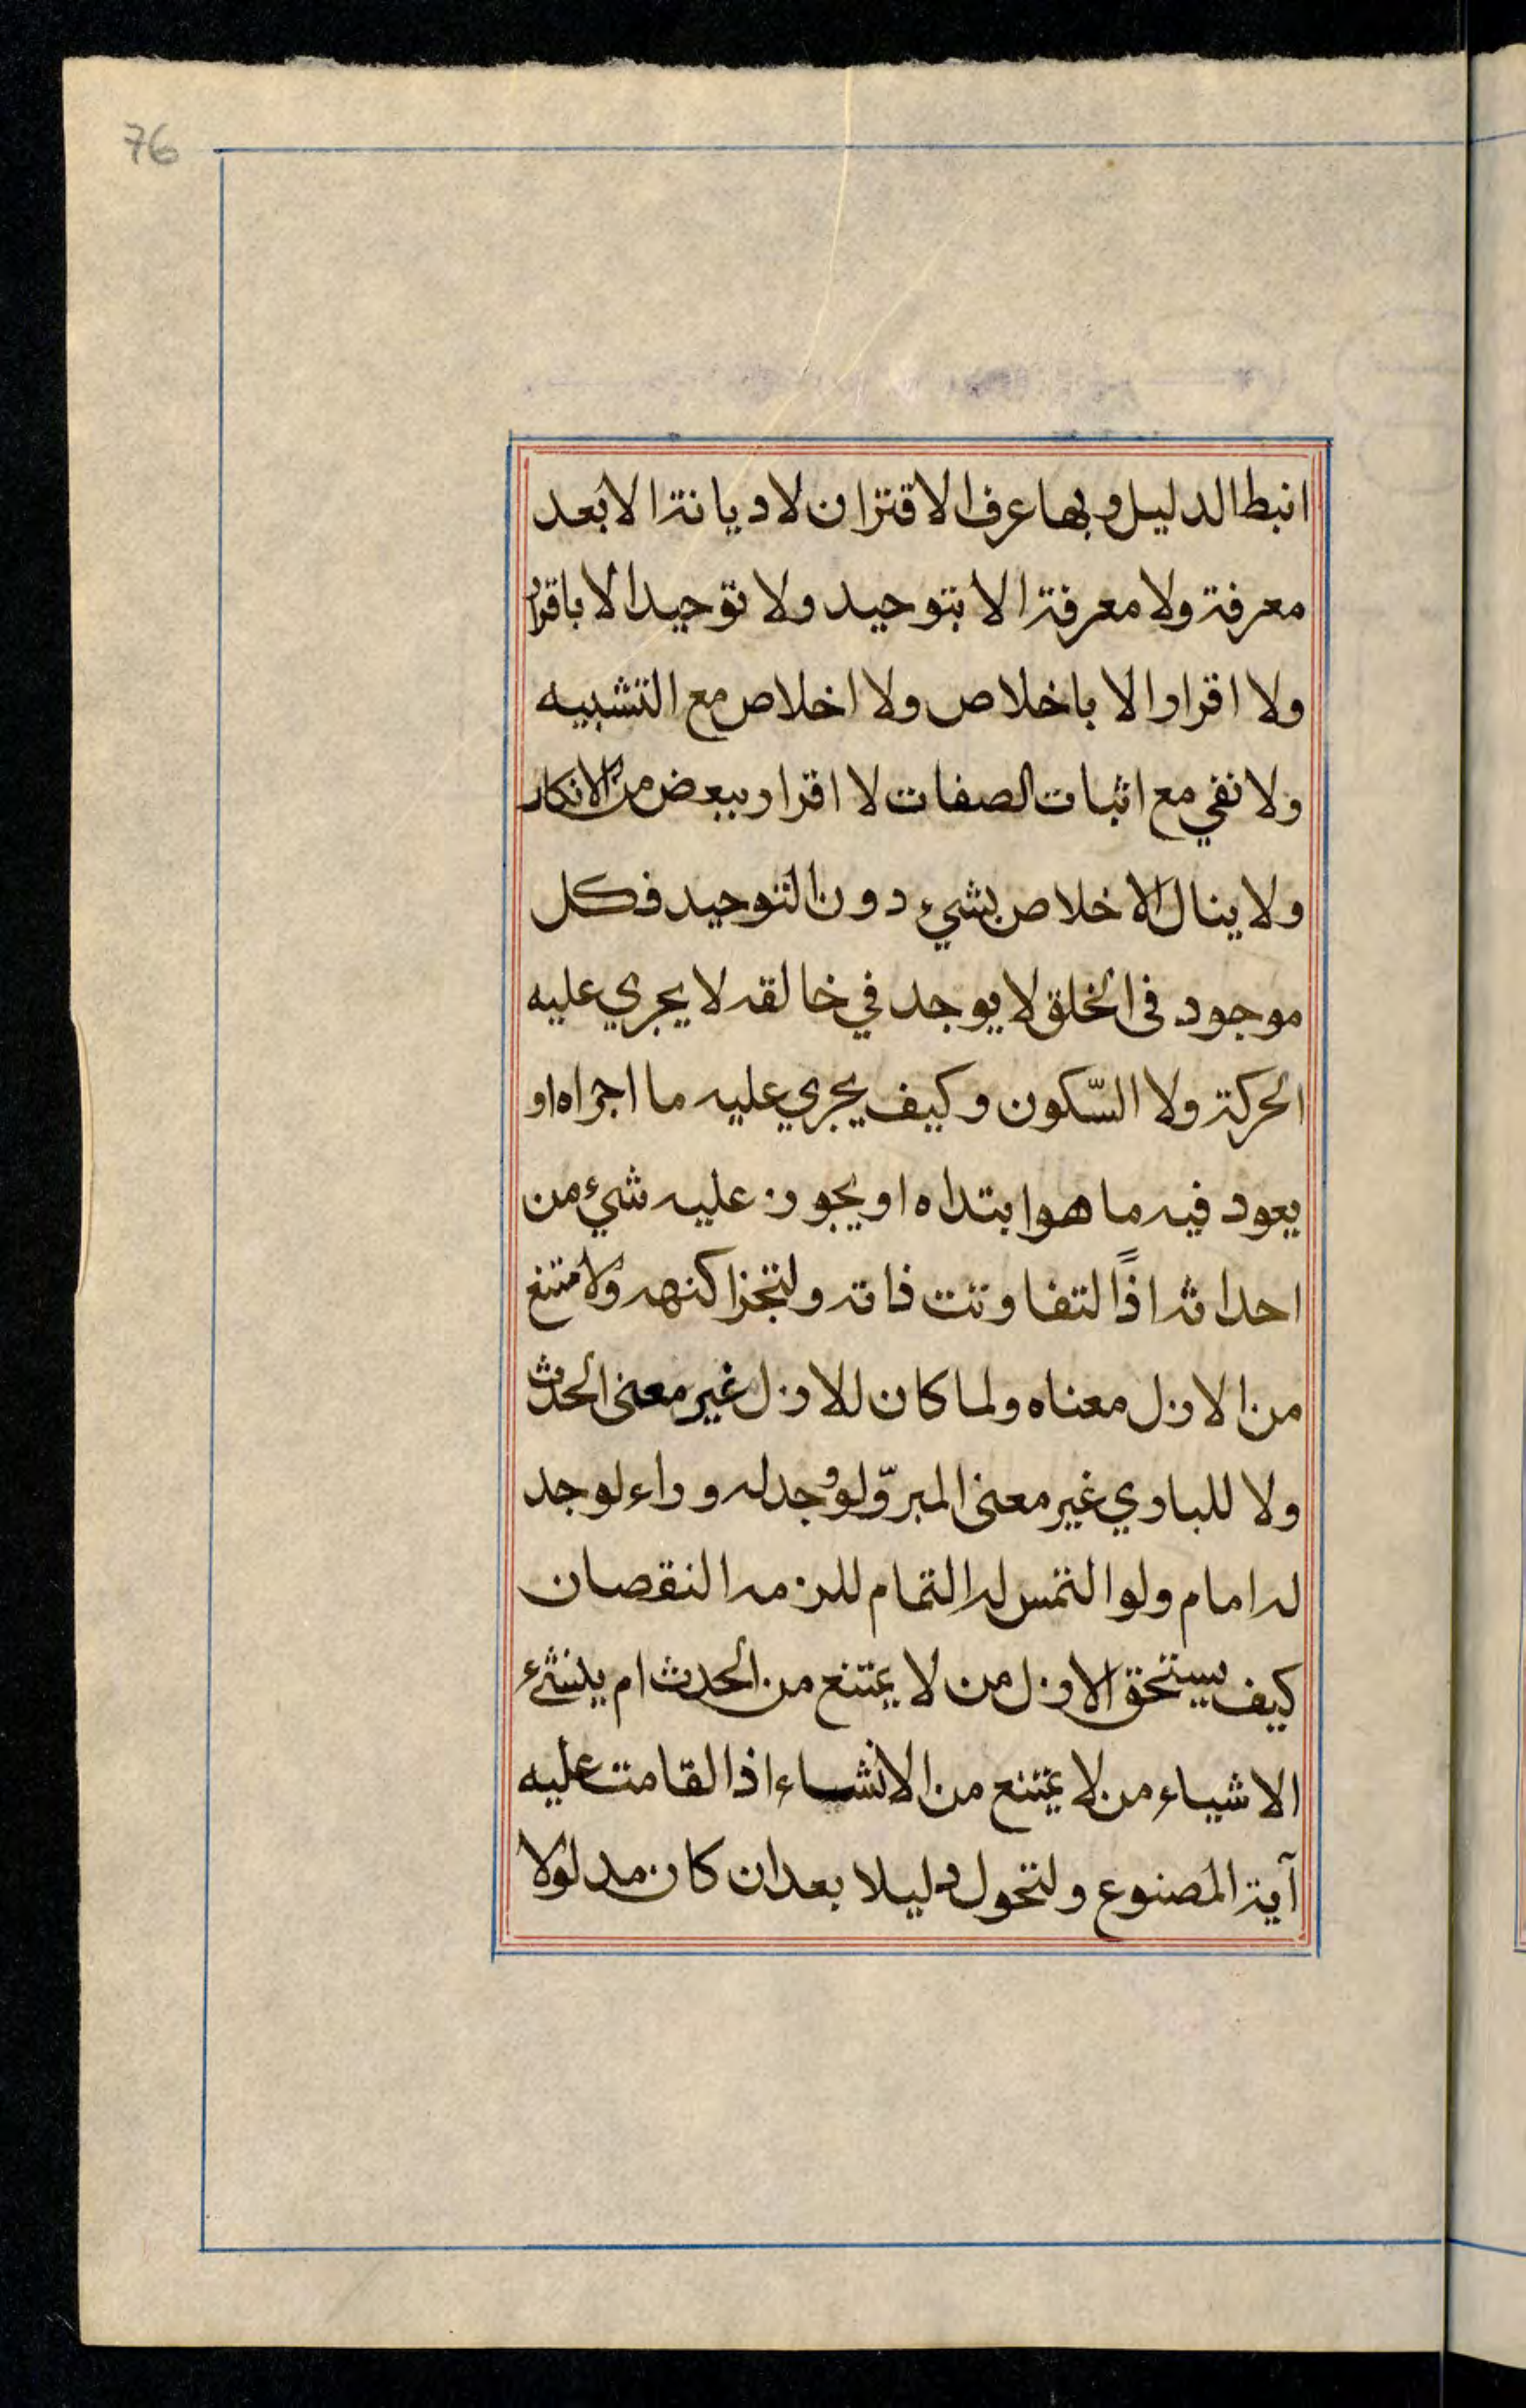 76
انبط الدليل وبها عرف الاقتران لا ديانة الا بعد
معرفة ولا معرفة الا بتوحيد ولا توحيد الا باقرار
ولا اقرار الا باخلاص ولا اخلاص مع التشبيه
ولا نفي مع اثبات الصفات لا اقرار ببعض من الانكار
ولا ينال الاخلاص بشيء دون التوحيد فكل
موجود في الخلق لا يوجد في خالقه لا يجري عليه
الحركة ولا السّكون وكيف يجري عليه ما اجراه او
يعود فيه ما هو ابتداه او يجوز عليه شيء من
احداثه اذًا لتفاوتت ذاته ولتجزا كنهه ولامتنع
من الازل معناه ولما كان للازل غير معنى الحدث
ولا للباري غير معنى المبروّ لو وُجد له وراء لوجد
له امام ولو التمس له التمام للزمه النقصان
كيف يستحق الازل من لا يمتنع من الحدث ام ينشئ
الاشياء من لا يمتنع من الانشاء اذا لقامت عليه
آية المصنوع ولتحول دليلا بعد ان كان مدلولا